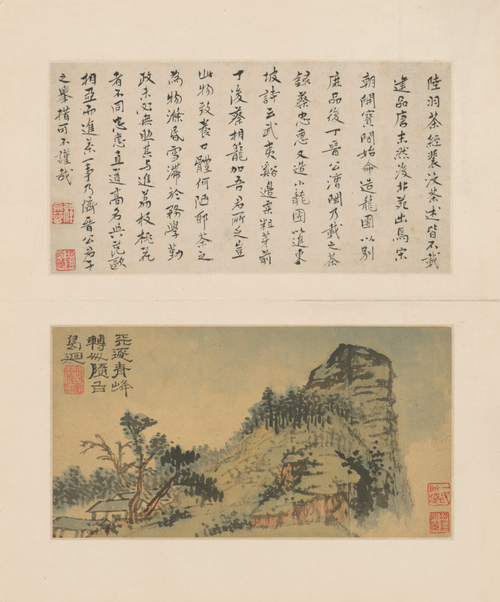 陸羽茶經裴汶茶述皆不載
建品唐末然後北苑出焉宋
朝開寶間始命造龍團以別
庶品後丁晉公漕閩乃載之茶
錄蔡忠惠又造小龍團以進東
坡詩云武夷谿邊粟粒芽前
丁後蔡相籠加吾君所乏豈
此物致養口體何陋耶茶之
為物滌昏雪滯於務學勤
政未必無助其與進荔枝桃花
者不同忠惠直道高名與范歐
相亞而進茶一事乃儕晉公君子
之舉措可不謹哉
逐青峰
轉隨
迴